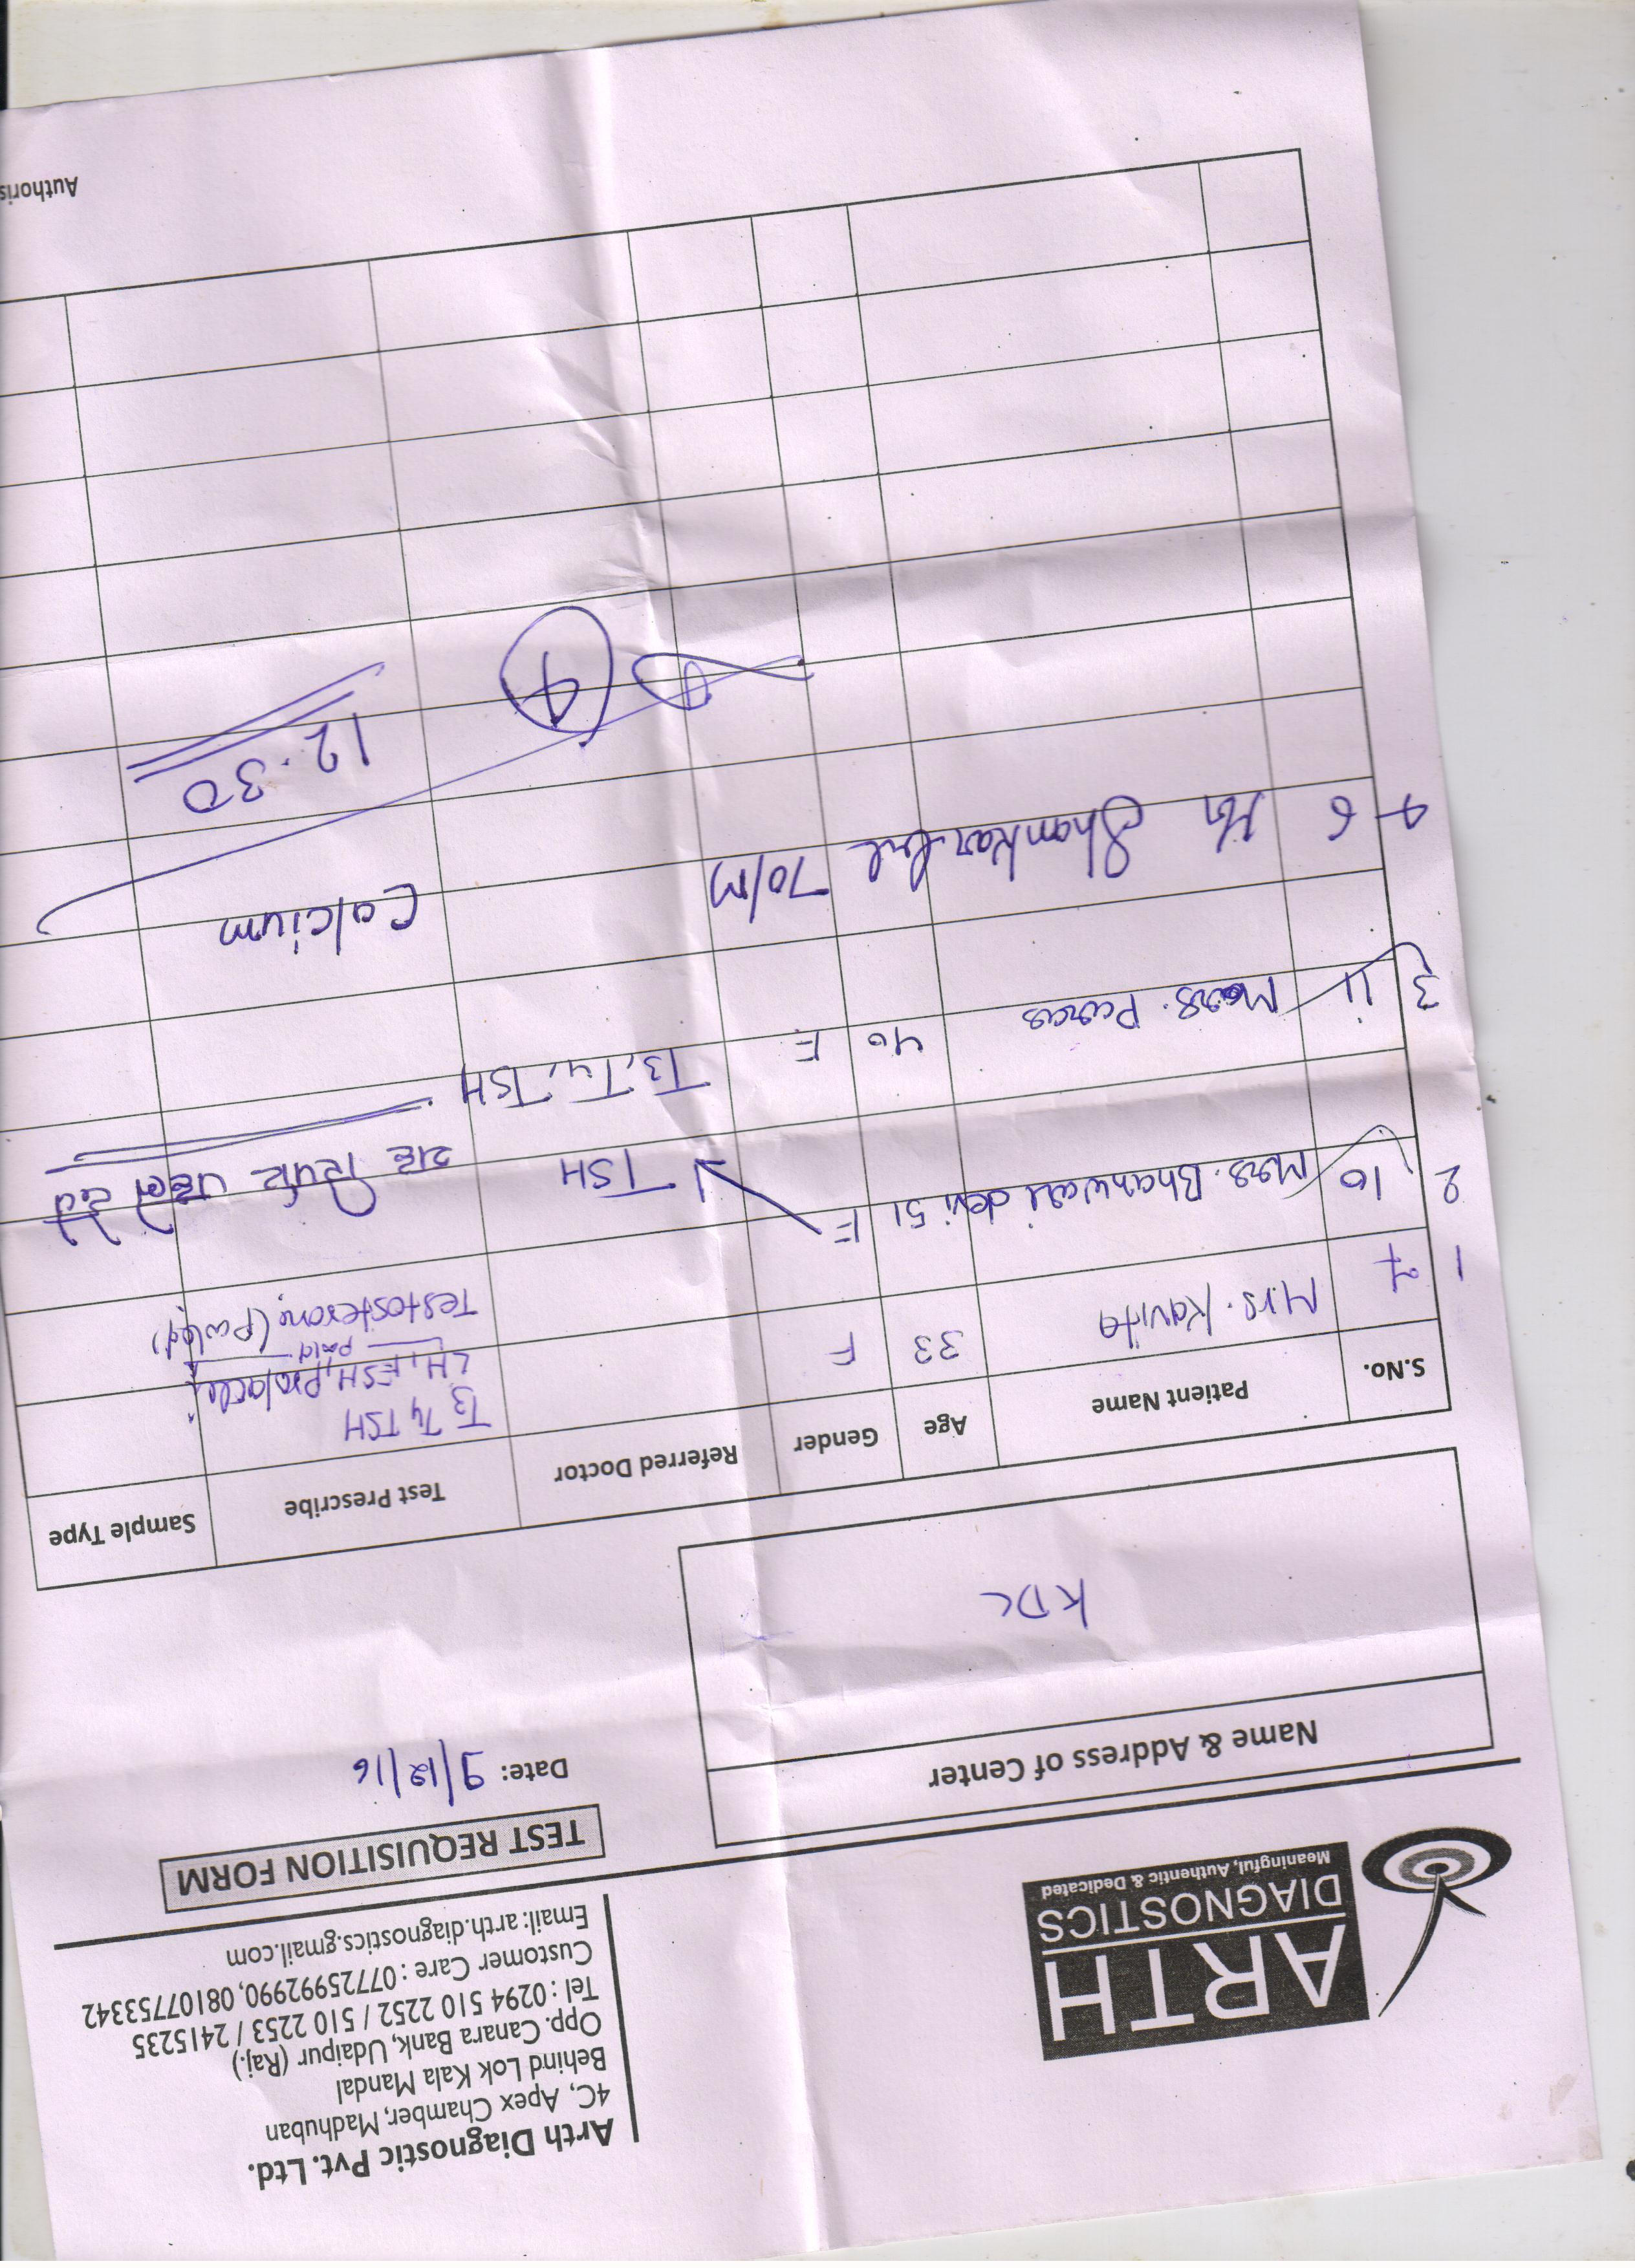 ARTH
DIAGNOSTICS
Meaningful, Authentic & Dedicated
Arth Diagnostic Pvt. Ltd.
4C, Apex Chamber, Madhuban
Behind Lok Kala Mandal
Opp. Canara Bank, Udaipur (Raj.)
Tel : 0294 510 2252 / 510 2253 / 2415235
Customer Care : 07725992990, 08107753342
Email: arth.diagnostics.gmail.com
TEST REQUISITION FORM
Date: 9/12/16
Name & Address of Center
KDC
S.No. Patient Name Age Gender Referred Doctor Test Prescribe Sample Type
1 Mrs. Kavita 33 F T3 T4 TSH
LH, FSH, prolactin
paid
Testosterone,
2 10 Mrs. Bhanwari devi 51 F TSH
3 11 Mrs. Paras 40 F T3, T4, TSH
4 6 Shankar lal 70/M Calcium
4
12.30
Authoris